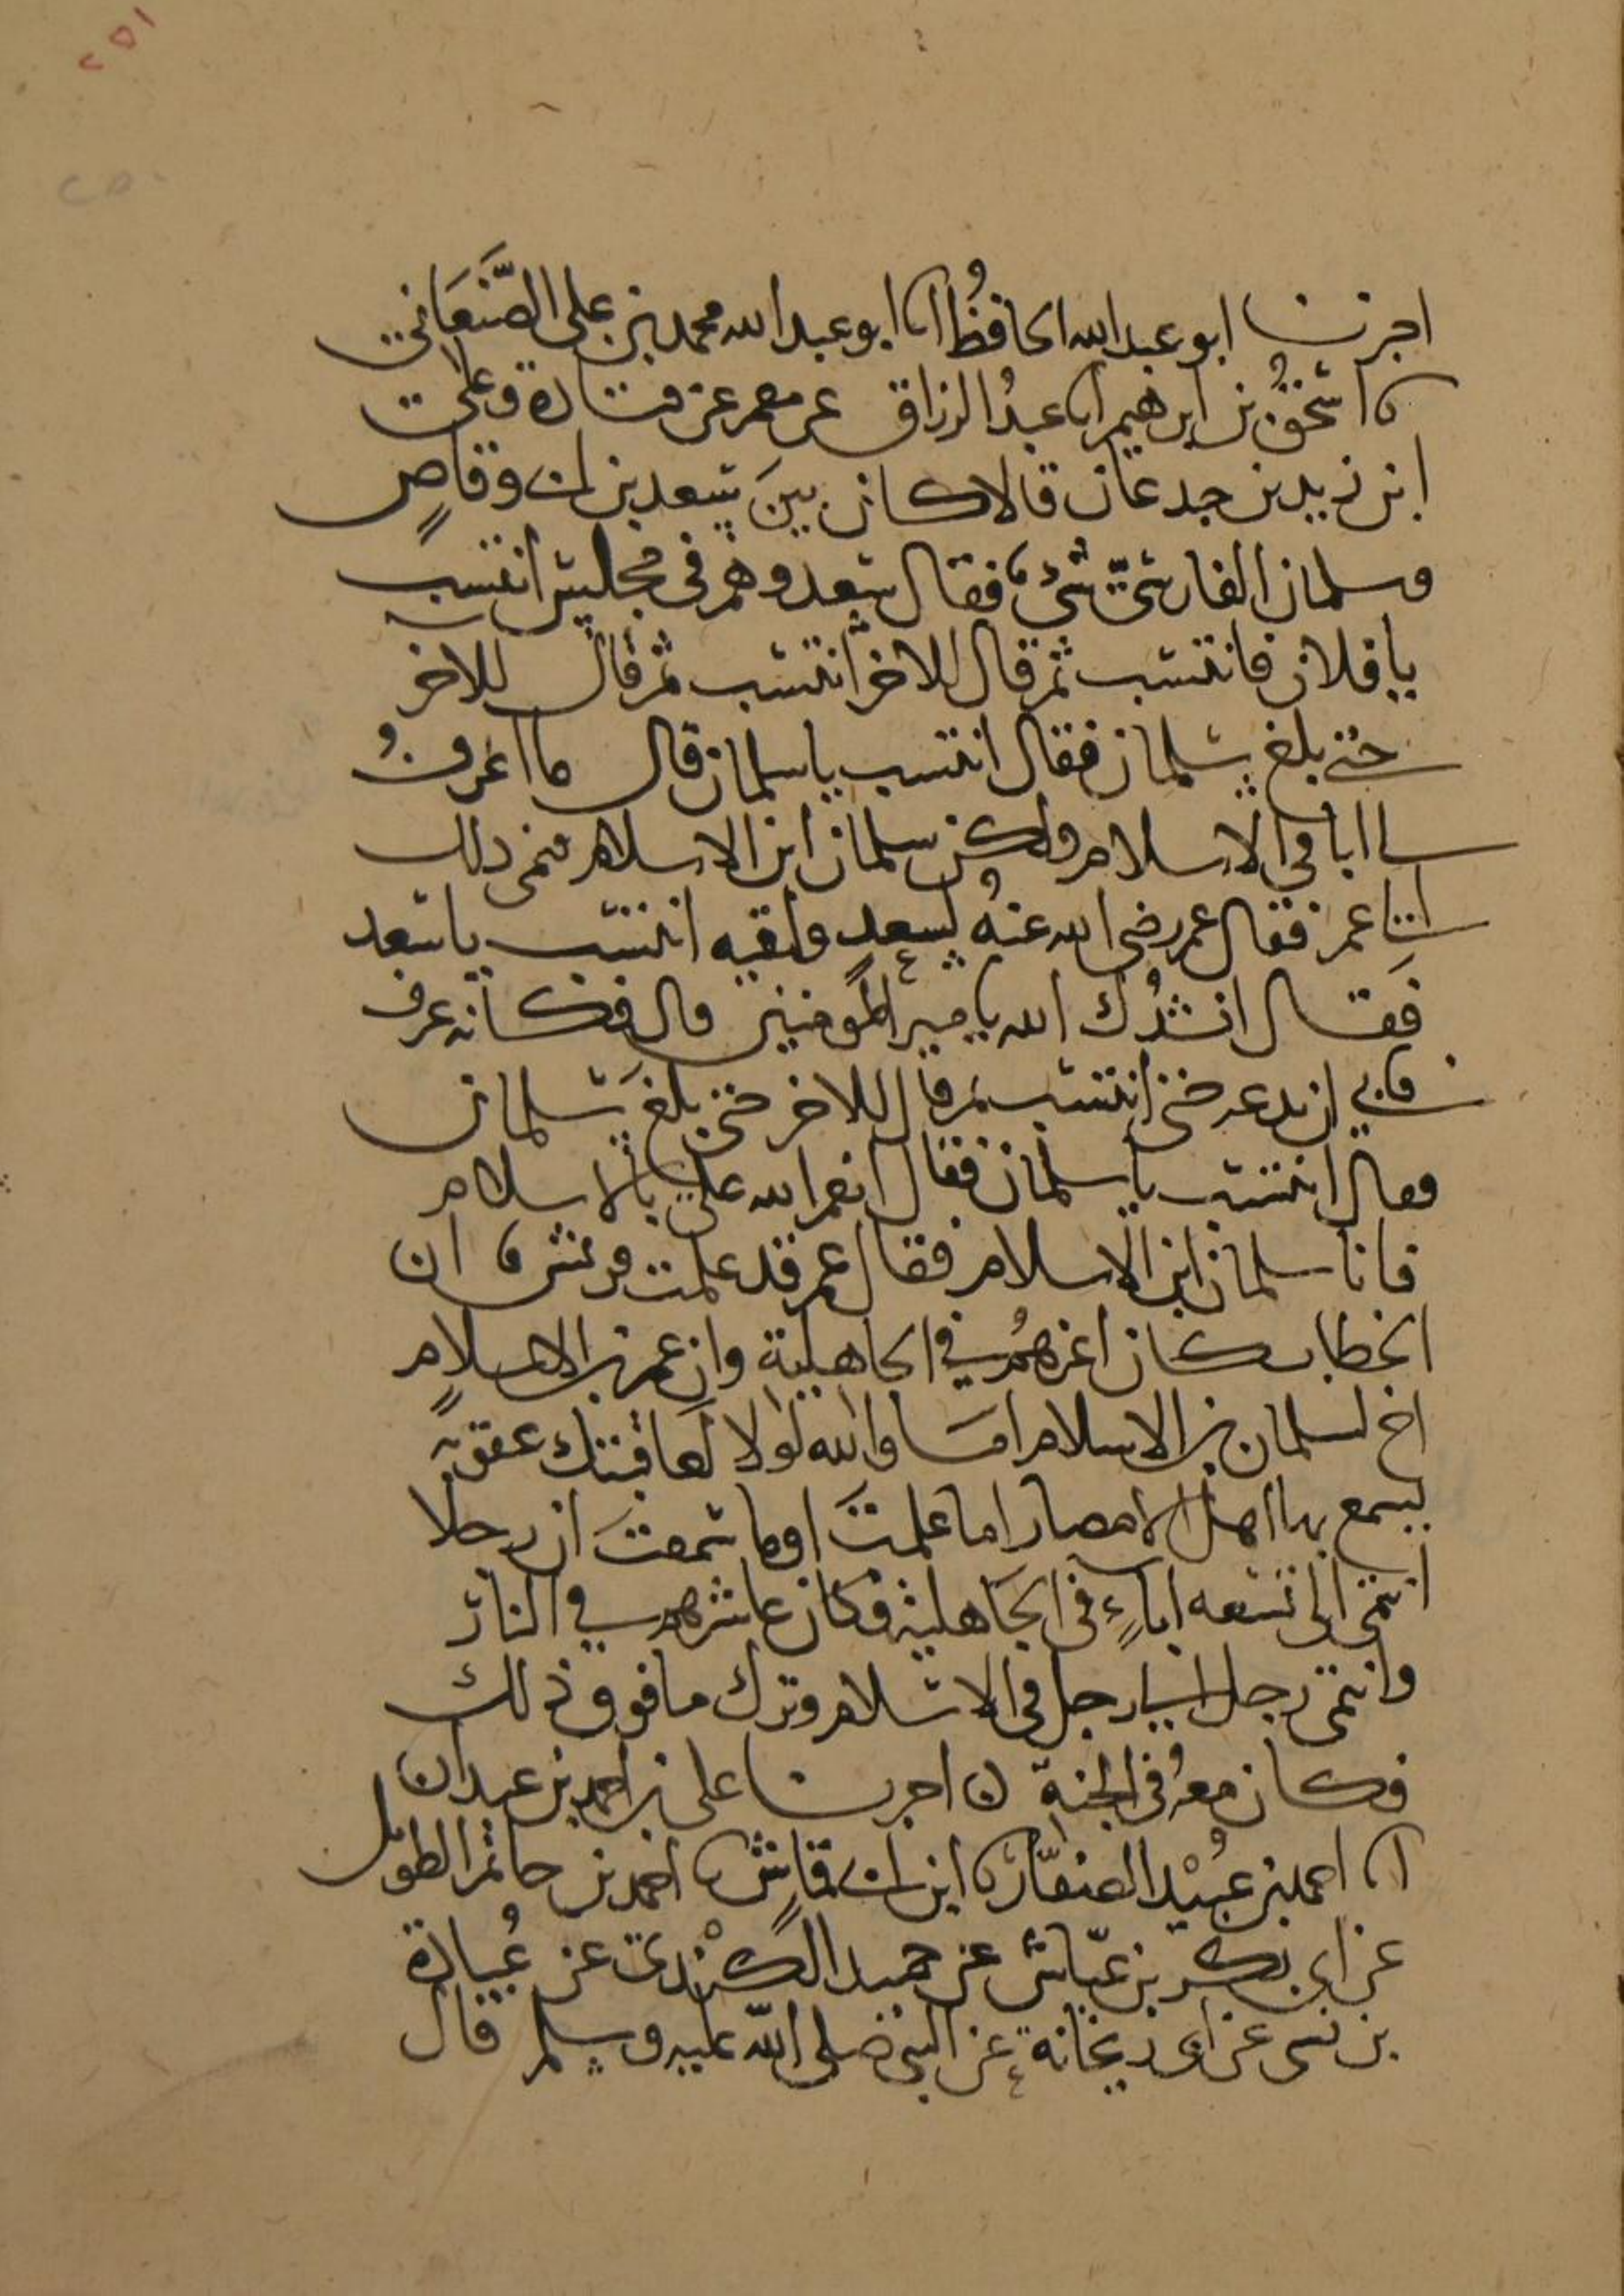 ٢٥١
٢٥٠
اخبرنا ابو عبد الله الحافظُ انا ابو عبد الله محمد بن على الصَّنعَاني
نا اسحٰقُ بن ابرهيم انا عبدُ الرزاق عن معمر عن قتادة وعلى
ابن زيد بن جدعان قالا كان بينَ سعد بن ابى وقاصٍ
وسلمان الفارسىّ شىٌ فقال سعد وهم فى مجلس انتسب
يا فلان فانتسب ثم قال للاخر انتسب ثم قال للاخر
حتى بلغ سلمان فقال انتسب يا سلمان قال ما اعرفُ
لى ابا فى الاسلام ولكن سلمان ابن الاسلام فنمى ذلك
الى عمر فقال عمر رضى الله عنهُ لسعدٍ ولقيه انتسب يا سعد
فقال انشدُك الله يا مير المومنين قال فكانه عرف
فابى ان يدعه حتى انتسب ثم قال للاخر حتى بلغَ سلمان
فقال انتسب يا سلمان فقال انعم الله علي بالاسلام
فانا سلمان ابن الاسلام فقال عمر قد علمت قريش ان
الخطاب كان اعزهمُ في الجاهلية وان عمر بن الاسلامِ
اخ لسلمان بن الاسلام امَا والله لولا لعاقبتك عقوبةً
يسمع بها اهل الامصار اما علمتَ اوما سمعتَ ان رجلا
انتمى الى تسعه اباءٍ فى الجَاهلية فكان عاشرهم في النار
وانتمى رجل الى رجل فى الاسلام وترك ما فوق ذلك
فكان معهُ فى الجنة ن اخبرنا على بن احمد بن عبدان
انا احمد بن عُبيْد الصفّار نا ابن ابى قماش نا احمد بن حاتم الطويل
عن ابى بكر بن عيّاش عن حميد الكنْدى عن عُبادة
بن نسى عن ابى ريحانة عن النبى صلى الله عليه وسلم قال